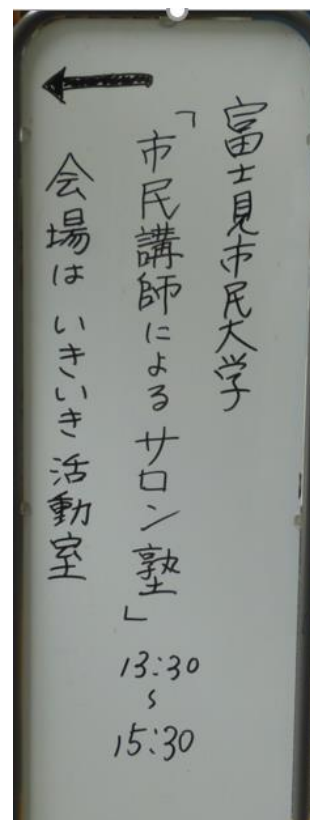 富士見市民大学
「市民講師によるサロン塾」
13:30
〜
15:30
会場は いきいき活動室